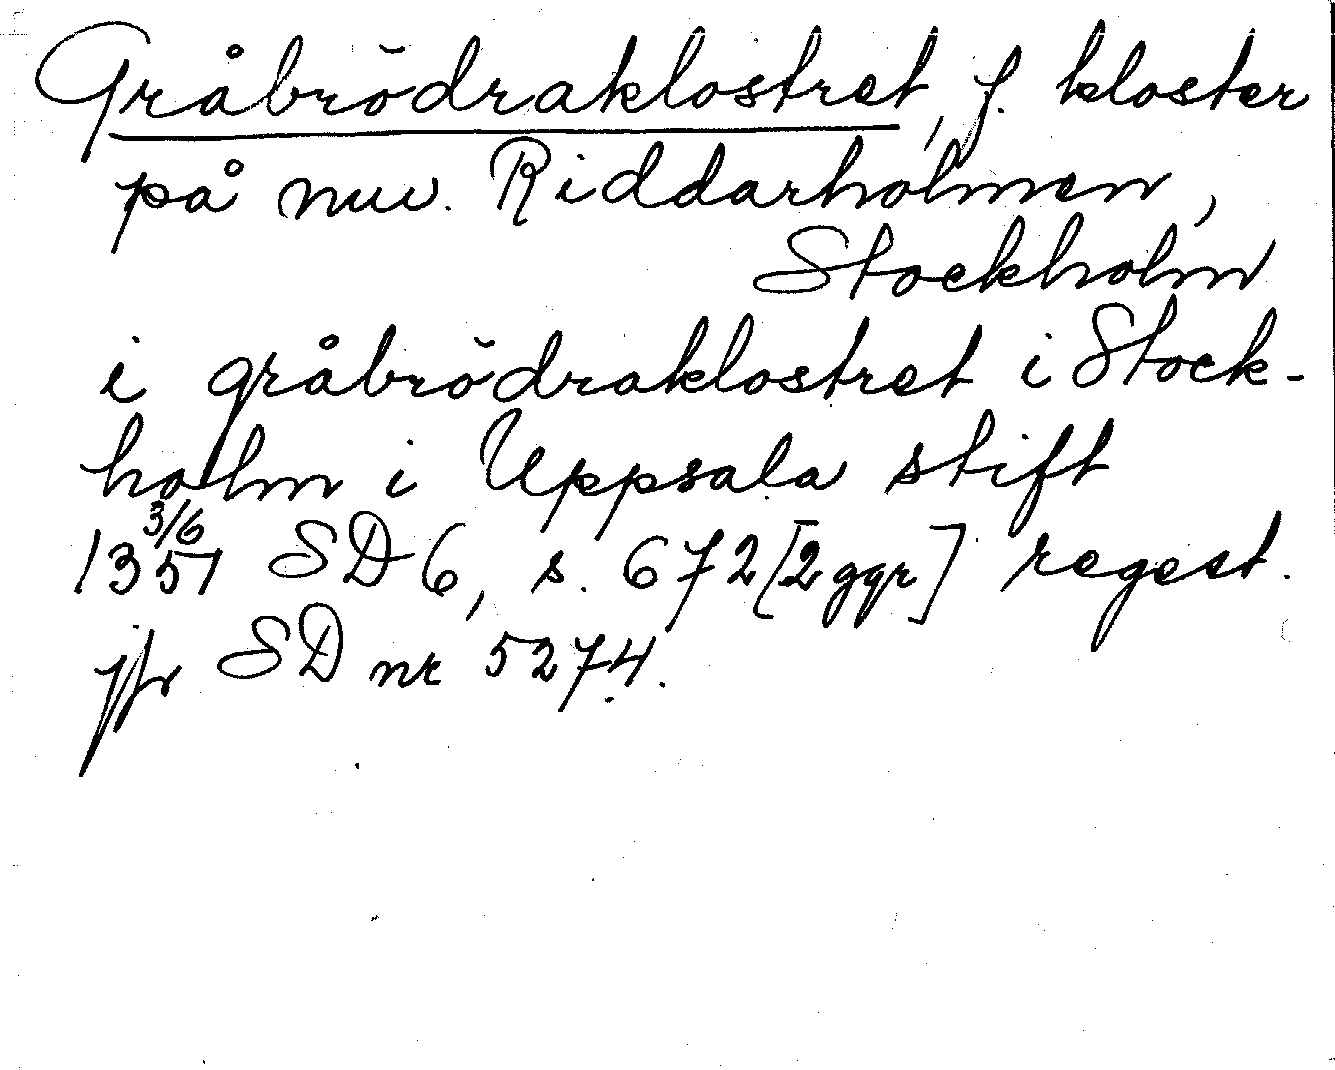 Gråbrödraklostret, f. kloster
på nuv. Riddarholmen,
Stockholm
i gråbrödraklostret i Stock-
holm i Uppsala stift
3/6
1357 SD 6, s. 672 [2 ggr] regest.
jfr SD nr 5274.